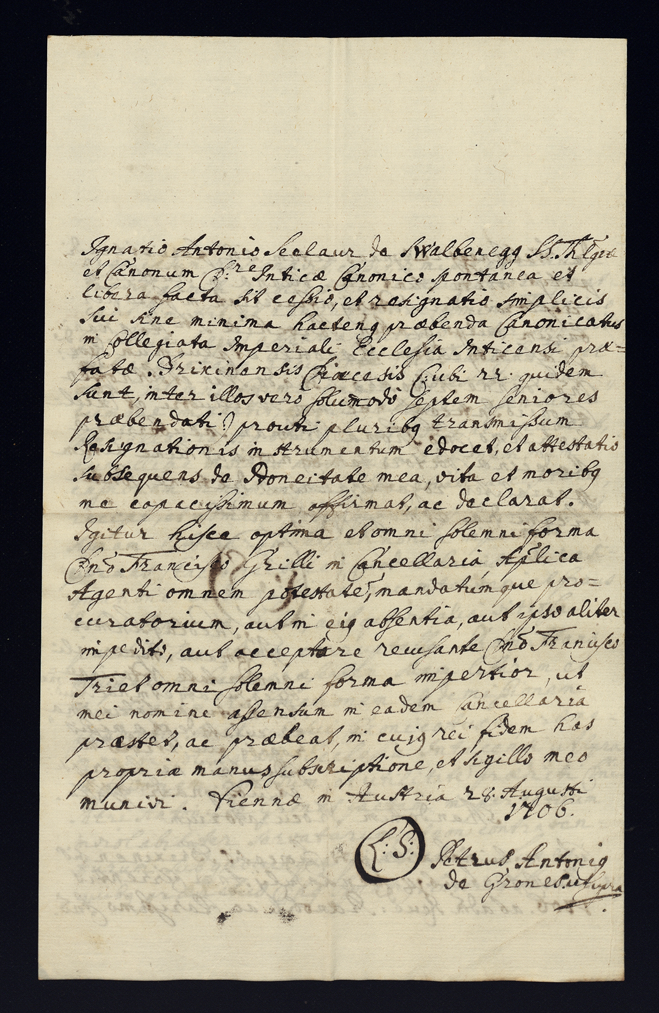 Ignatio Antonio Seelaur de Walbenegg SS. Th
et Canonum Inticæ Canonico spontanea et
libera facta sit cessio, et resignatio simplicis
sui sine minima hactenq præbenda Canonicatus
in Collegiata Imperiali Ecclesia Inticensi præ=
fatæ Brixinensis Diœcesis (Ubi 22. quidem
sunt, inter illos vero solumodo septem seniores
præbendati) prouti pluribq transmissum
Resignationis instrumentum edocet, et attestatio
subsequens de Idoneitate mea, vita et moribq
me capacissimum affirmat, ac declarat.
Igitur hisce optima et omni solemni forma
Dno Francisco Grilli in Cancellaria Aplica
Agenti omnem potestatem, mandatumque pro=
curatorium, aut in eiq absentia, aut ipso aliter
impedito, aut acceptare recusante Dno Francisco
Triet omni solemni forma impertior, ut
mei nomine assensum in eadem Cancellaria
præstet, ac præbeat, in cujq rei fidem has
propriæ manus subscriptione, et sigillo meo
munivi. Viennæ in Austria 28. Augusti
1706.
L: S: Petrus Antoniq
de Grones